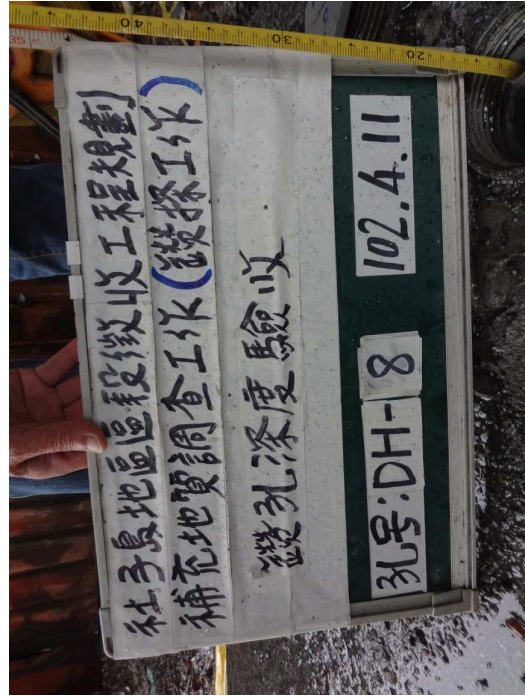 社子島地區區段徵收工程規劃
補充地質調查工作(鑽探工作)
鑽孔深度驗收
孔号:DH-8 102.4.11
40
30
20
35